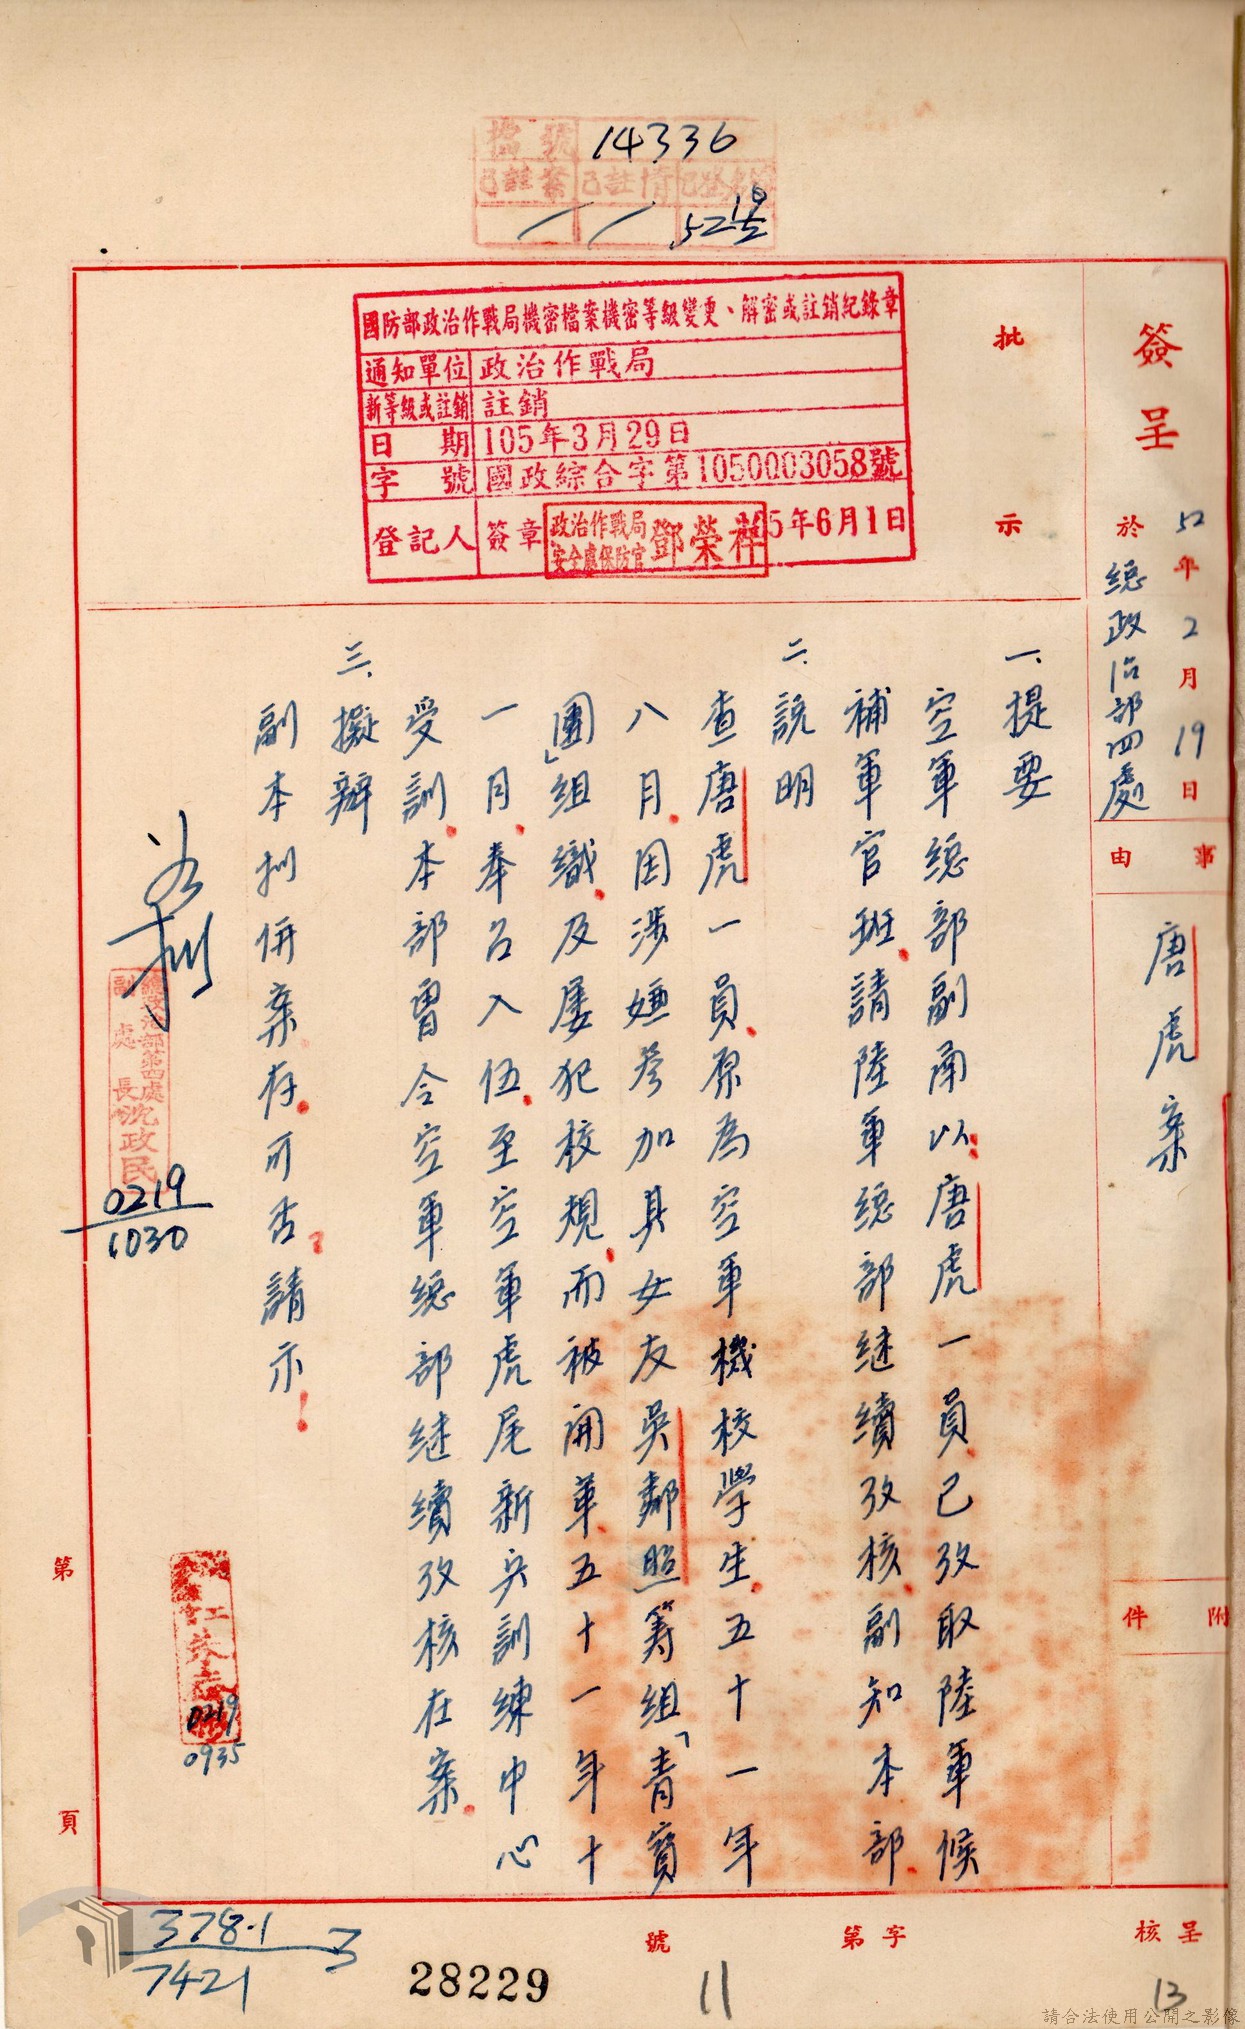 檔號 14336
已註案 已註情
52
國防部政治作戰局機密檔案機密等級變更、解密或註銷紀錄章
通知單位 政治作戰局
新等級或註銷 註銷
日期 105年3月29日
字號 國政綜合字第1050003058號
登記人 簽章 政治作戰局 安全處保防官 鄧榮祥 5年6月1日
批示
簽呈
52年2月19日
於總政治部四處
事由
唐虎案
附件
一、提要
空軍總部副南以唐虎一員已攷取陸軍候
補軍官班請陸軍總部继續攷核副知本部
二、說明
查唐虎一員原為空軍機校學生五十一年
八月因涉嫌參加其女友吳鄰照籌組「青寶
團」組織及屡犯校規而被開革五十一年十
一月奉召入伍至空軍虎尾新兵訓練中心
受訓本部曾令空軍總部继續攷核在案
三、擬辦
副本拟併案存可否請示
總政治部第四處
副處長 沈政民
0219
1030
0219
0935
第 頁
呈核
字第 號
378.1
7421
3
28229
11
13
請合法使用公開之影像